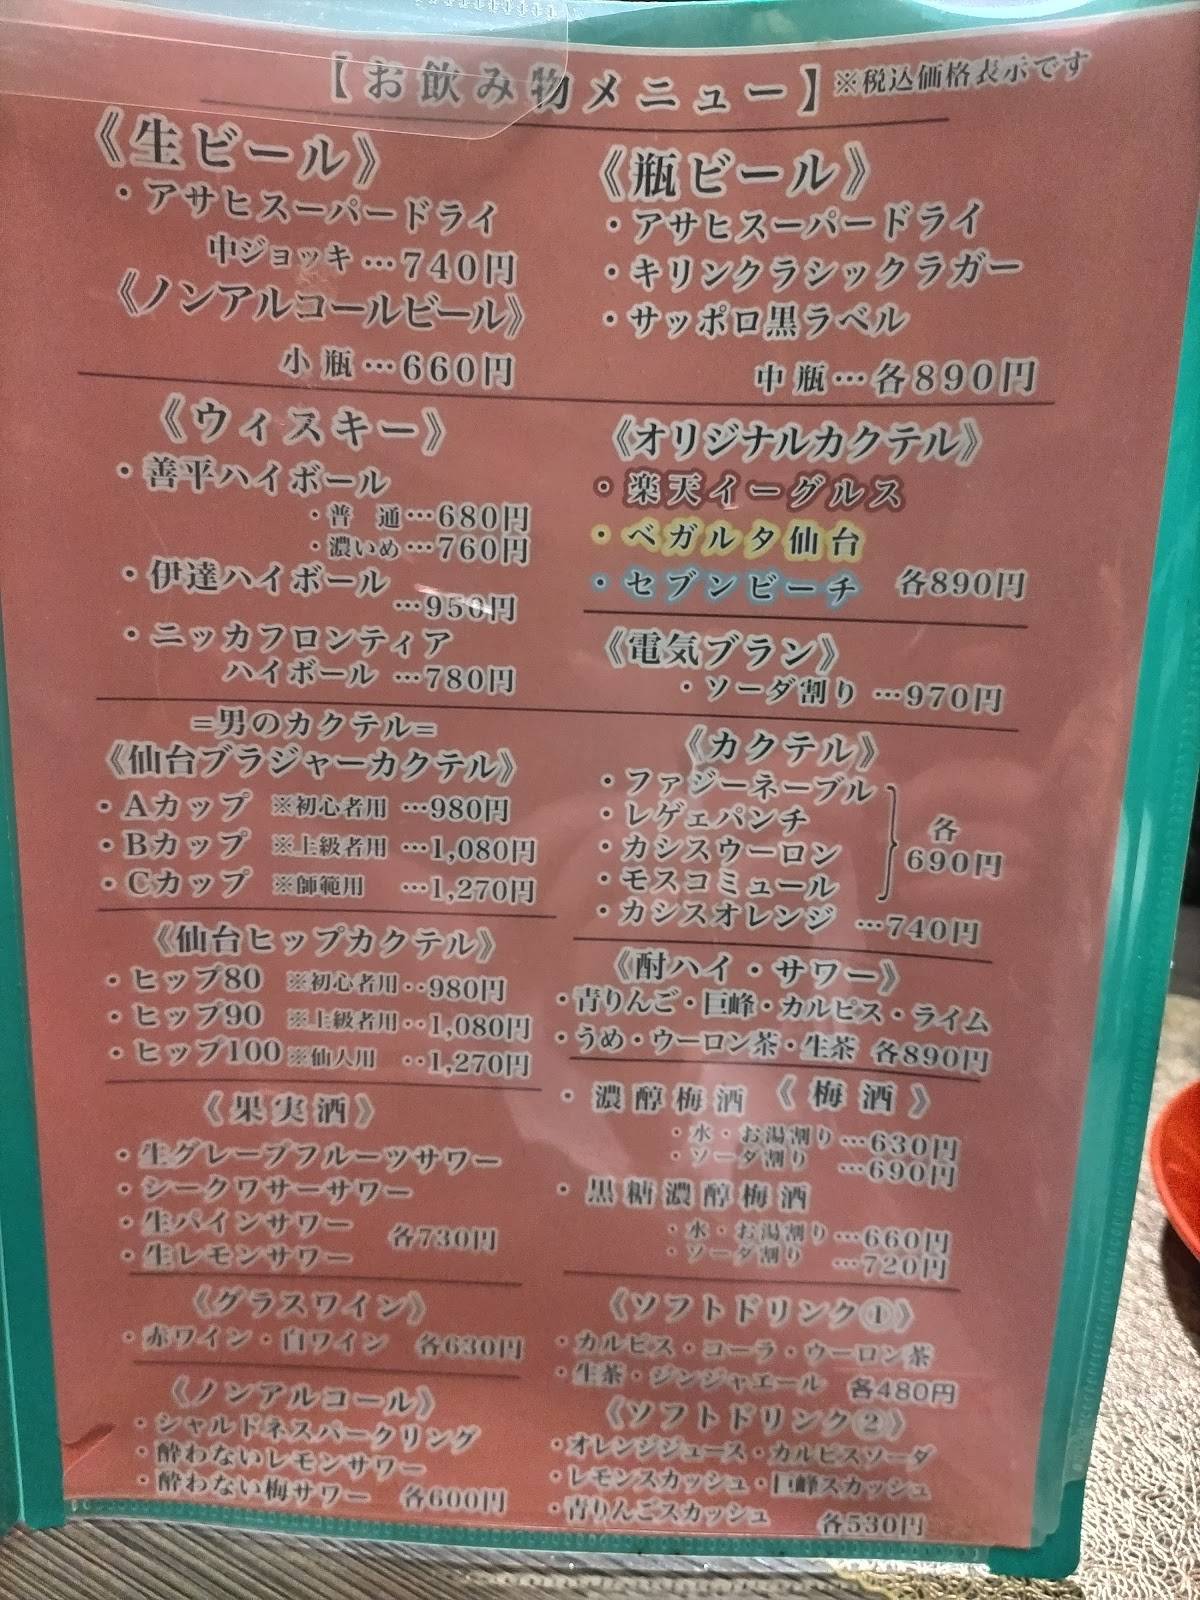 【お飲み物メニュー】※税込価格表示です
《生ビール》
・アサヒスーパードライ
中ジョッキ…740円
《ノンアルコールビール》
小瓶…660円
《瓶ビール》
・アサヒスーパードライ
・キリンクラシックラガー
・サッポロ黒ラベル
中瓶…各890円
《ウィスキー》
・善平ハイボール
・普 通…680円
・濃いめ…760円
・伊達ハイボール
…950円
・ニッカフロンティア
ハイボール …780円
《オリジナルカクテル》
・楽天イーグルス
・ベガルタ仙台
・セブンビーチ 各890円
《電気ブラン》
・ソーダ割り …970円
=男のカクテル=
《仙台ブラジャーカクテル》
・Aカップ ※初心者用 …980円
・Bカップ ※上級者用 …1,080円
・Cカップ ※師範用 …1,270円
《カクテル》
・ファジーネーブル
・レゲェパンチ
・カシスウーロン
・モスコミュール
各
690円
・カシスオレンジ …740円
《仙台ヒップカクテル》
・ヒップ80 ※初心者用‥980円
・ヒップ90 ※上級者用‥1,080円
・ヒップ100※仙人用 ‥1,270円
《酎ハイ・サワー》
・青りんご・巨峰・カルピス・ライム
・うめ・ウーロン茶・生茶 各890円
《果実酒》
・生グレープフルーツサワー
・シークワサーサワー
・生パインサワー
・生レモンサワー
各730円
・濃醇梅酒 《梅酒》
・水・お湯割り…630円
・ソーダ割り …690円
・黒糖濃醇梅酒
・水・お湯割り…660円
・ソーダ割り …720円
《グラスワイン》
・赤ワイン・白ワイン 各630円
《ソフトドリンク①》
・カルピス・コーラ・ウーロン茶
・生茶・ジンジャエール 各480円
《ノンアルコール》
・シャルドネスパークリング
・酔わないレモンサワー
・酔わない梅サワー 各600円
《ソフトドリンク②》
・オレンジジュース・カルピスソーダ
・レモンスカッシュ・巨峰スカッシュ
・青りんごスカッシュ 各530円